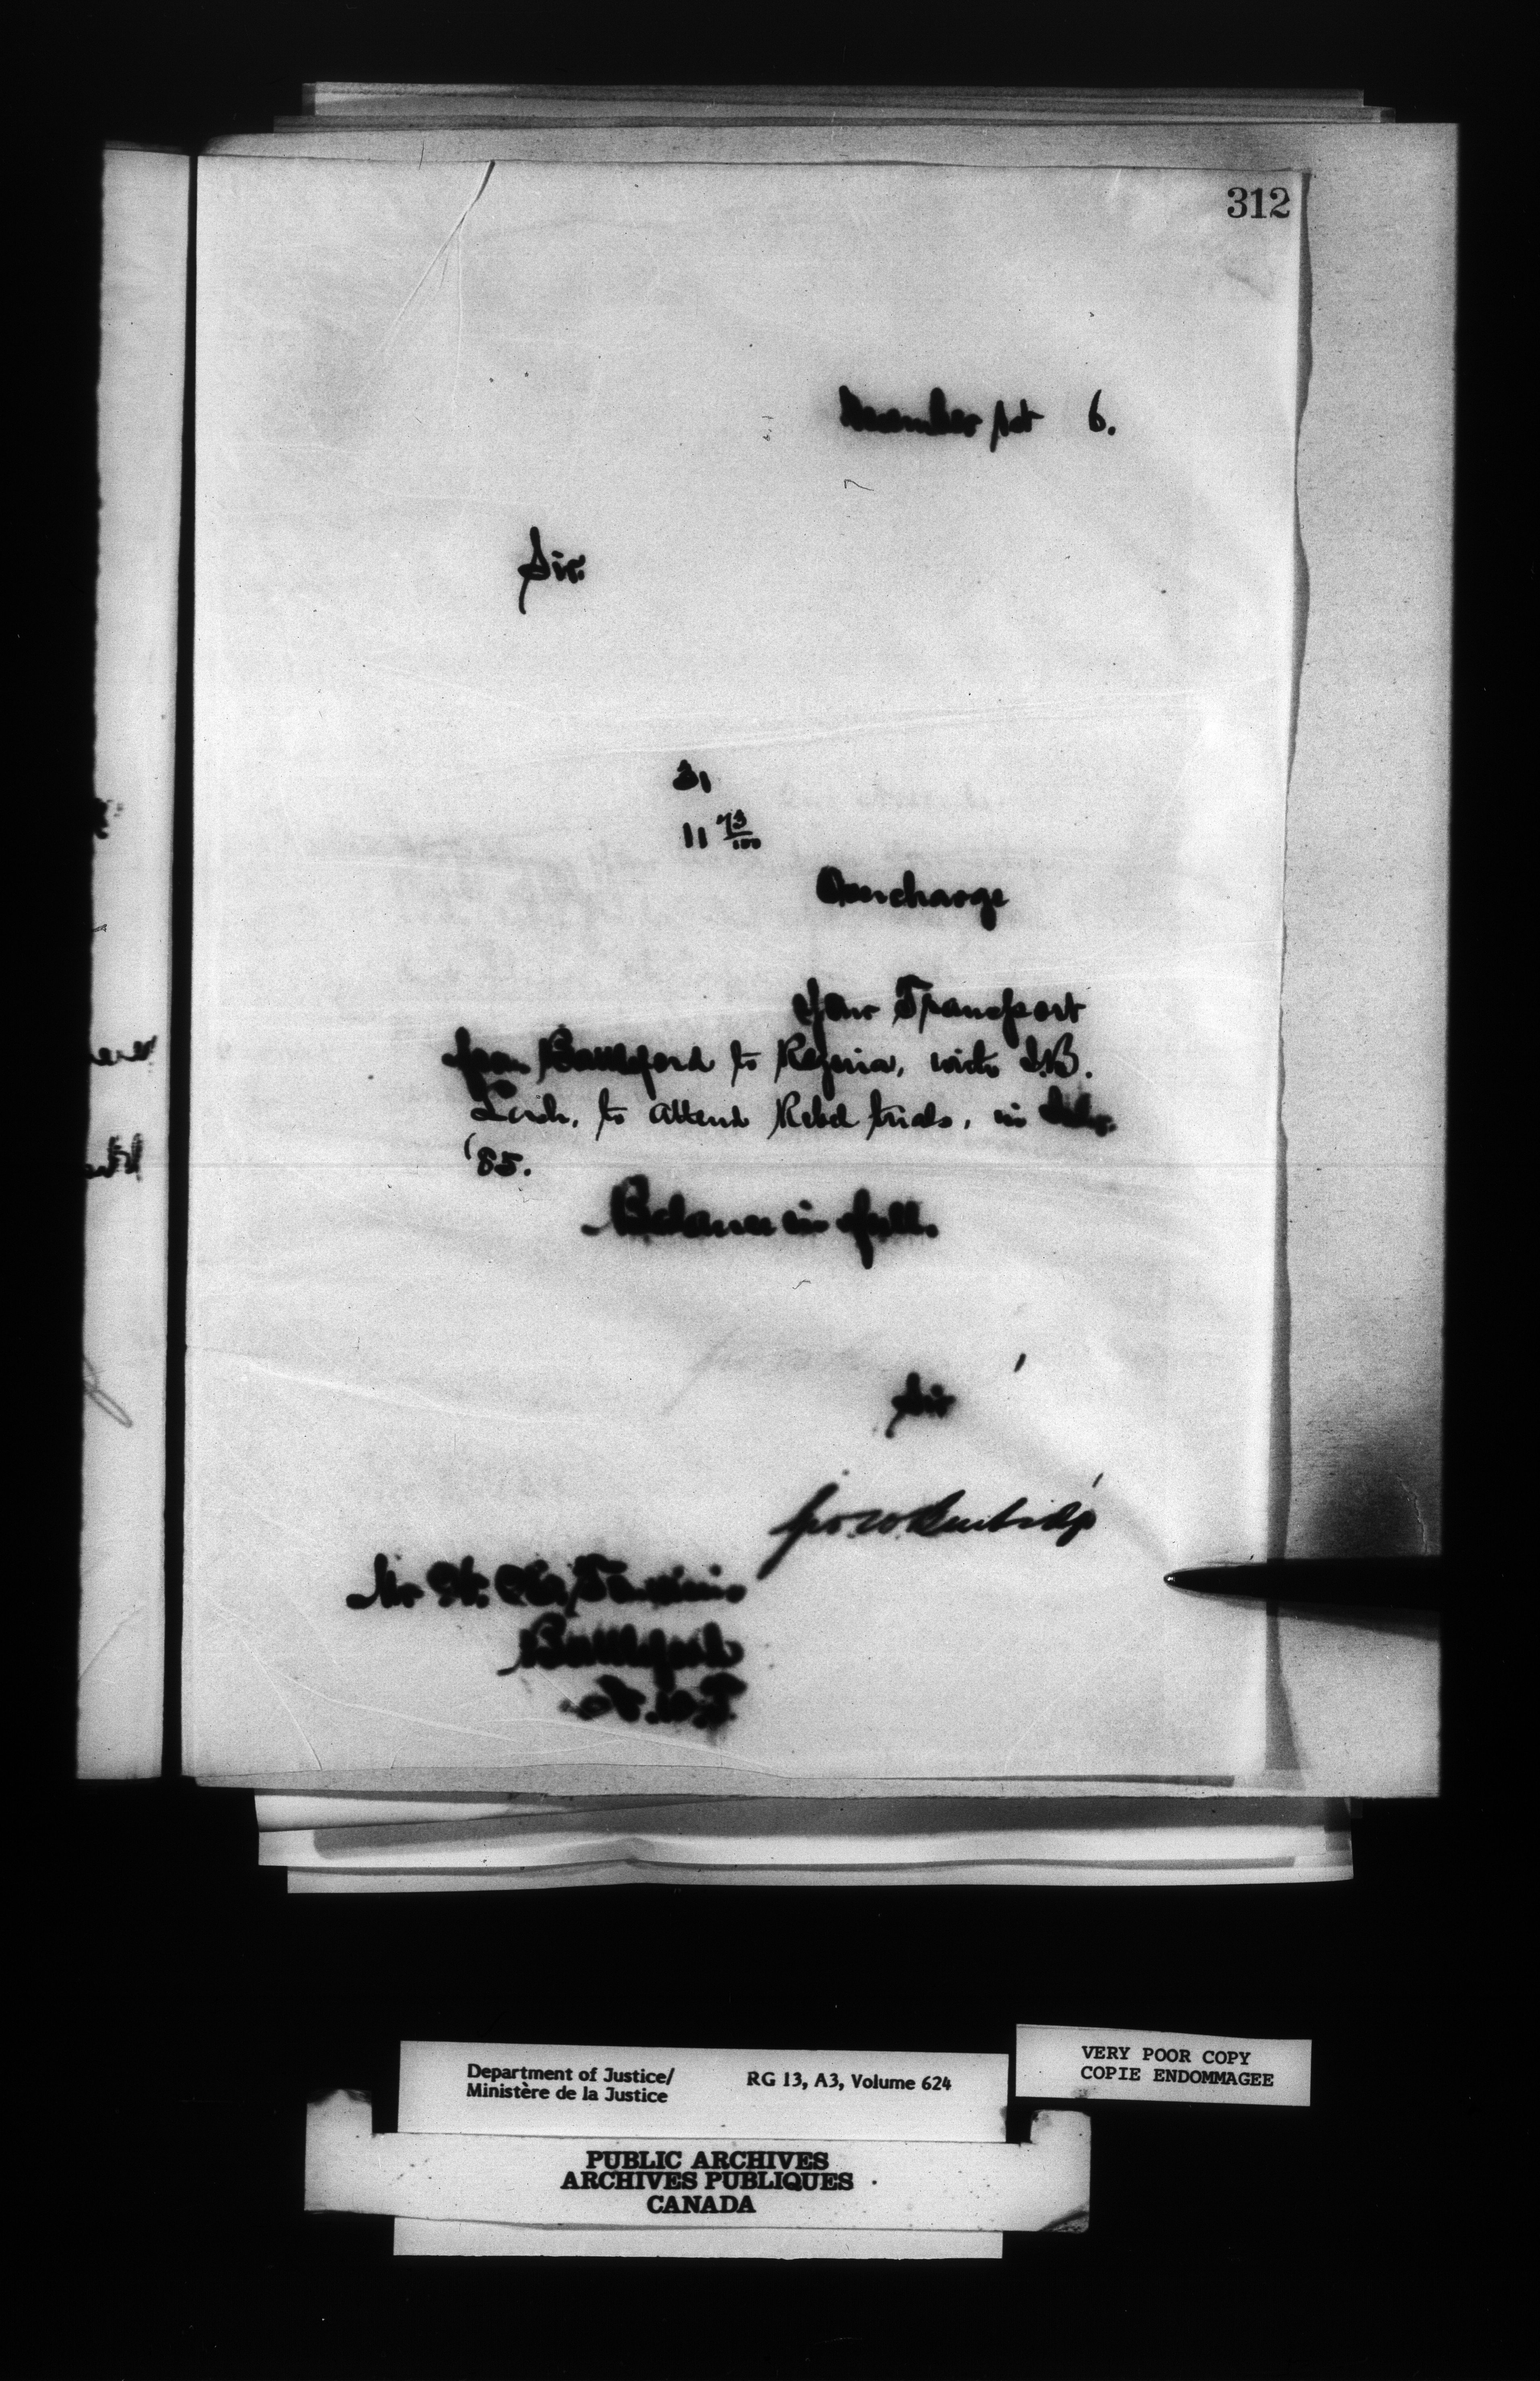 312
December 1st 6.
Sir
31
11 73/100
Overcharge
for Transport
from Battleford to Regina, with
to attend Rebel trials, in
'85.
Balance in full.
Sir
Geo. W. Burbidge
Mr
Battleford
N.W.T.
Department of Justice/
Ministère de la Justice
RG 13, A3, Volume 624
VERY POOR COPY
COPIE ENDOMMAGEE
PUBLIC ARCHIVES
ARCHIVES PUBLIQUES
CANADA